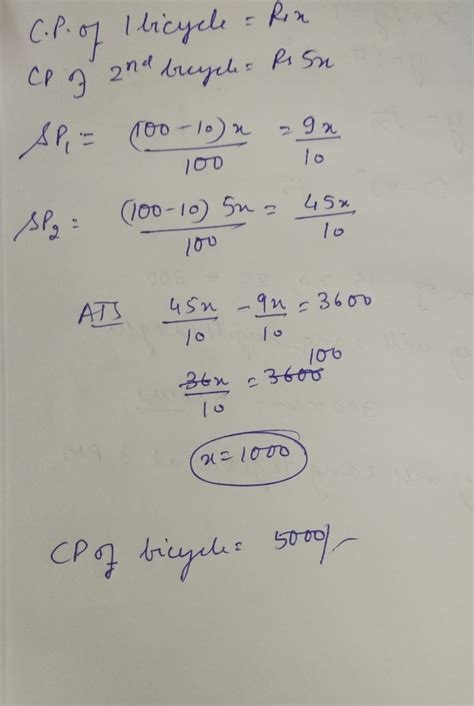 C.P. of 1 bicycle = Rs x
CP of 2nd bicycle = Rs 5x
SP₁ = (100-10)x/100 = 9x/10
SP₂ = (100-10) 5x/100 = 45x/10
ATS 45x/10 - 9x/10 = 3600
36x/10 = 3600 100
x = 1000
CP of bicycle = 5000/-